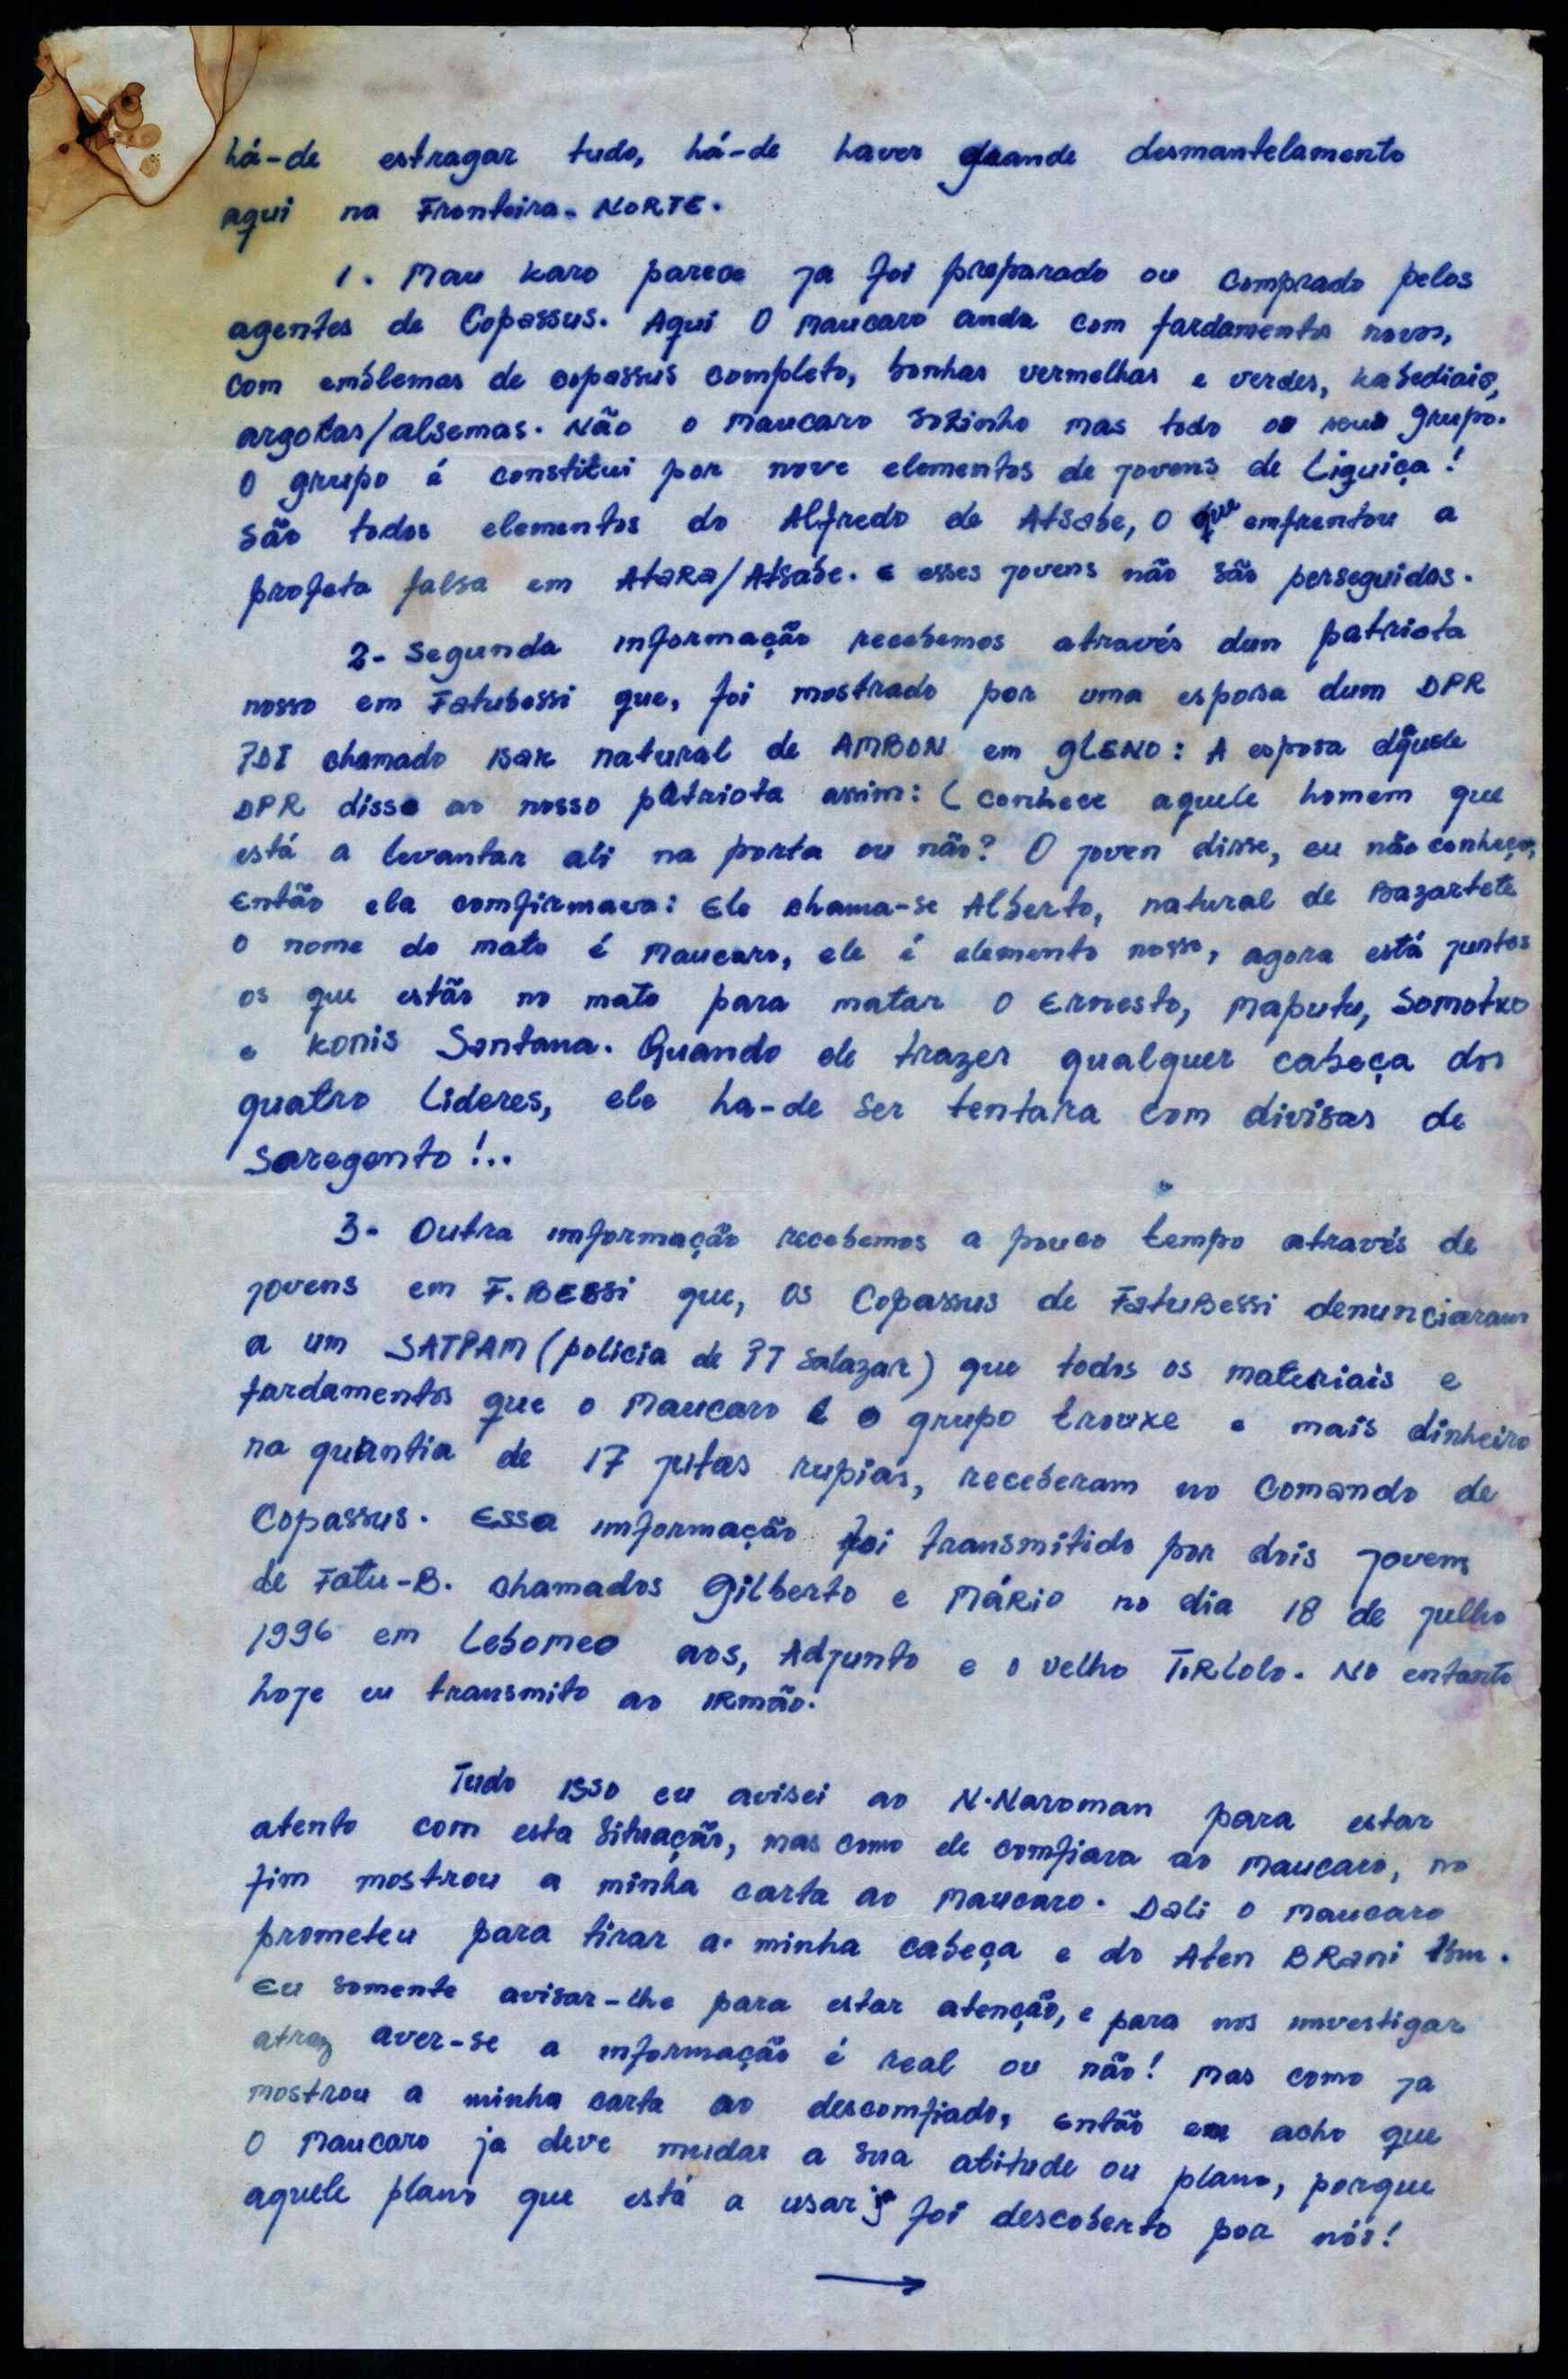 há-de estragar tudo, há-de haver grande desmantelamento
aqui na Fronteira-NORTE.
1. Mau karo parece ja foi preparado ou comprado pelos
agentes de Copassus. Aqui O maucaro anda com fardamentos novos,
com emblemas de copassus completo, bonhas vermelhas e verdes, kabediais,
argolas/alsemas. Não o maucaro sozinho mas todo o seu grupo.
O grupo é constitui por nove elementos de jovens de Liquiça!
são todos elementos do Alfredo de Atsabe, O que emfrentou a
profeta falsa em Atara/Atsabe. e esses jovens não são perseguidos.
2- Segunda informação recebemos através dum patriota
nosso em Fatubessi que, foi mostrado por uma esposa dum DPR
TDI chamado natural de AMBON em gLENO: A esposa dquele
DPR disse ao nosso patriota assim: (conhece aquele homem que
está a levantar ali na porta ou não? O joven disse, eu não conheço,
Então ela comfirmava: Ele chama-se Alberto, natural de Bazartete
o nome do mato é maucaro, ele é elemento nosso, agora está juntos
os que estão no mato para matar o Ernesto, maputu, Somotxo
e konis Santana. Quando ele trazer qualquer cabeça dos
quatro Lideres, ele ha-de ser tentara com divisas de
saregento!..
3- Outra imformação recebemos a pouco tempo através de
jovens em F.BESSi que, os Copassus de FatuBessi denunciaram
a um SATPAM (policia de PT Salazar) que todos os materiais e
fardamentos que o maucaro e o grupo trouxe e mais dinheiro
na quantia de 17 jutas rupias, receberam no Comando de
Copassus. Essa imformação foi transmitido por dois jovens
de Fatu-B. chamados gilberto e MáRio no dia 18 de julho
1996 em Lebomeo aos, Adjunto e o velho ToRlolo. No entanto
hoje eu transmito ao IRmão.
Tudo isso eu avisei ao N.Naroman para estar
atento com esta situação, mas como ele comfiava ao maucaro, no
fim mostrou a minha carta ao maucaro. Dali o maucaro
prometeu para tirar a minha cabeça e do Aten BRani
Eu somente avisar-lhe para estar atenção, e para nos investigar
atraz aver-se a imformação é real ou não! mas como ja
mostrou a minha carta ao descomfiado, Então eu acho que
O maucaro ja deve mudar a sua atitude ou plano, porque
aquele plano que está a usar já foi descoberto por nós!
→